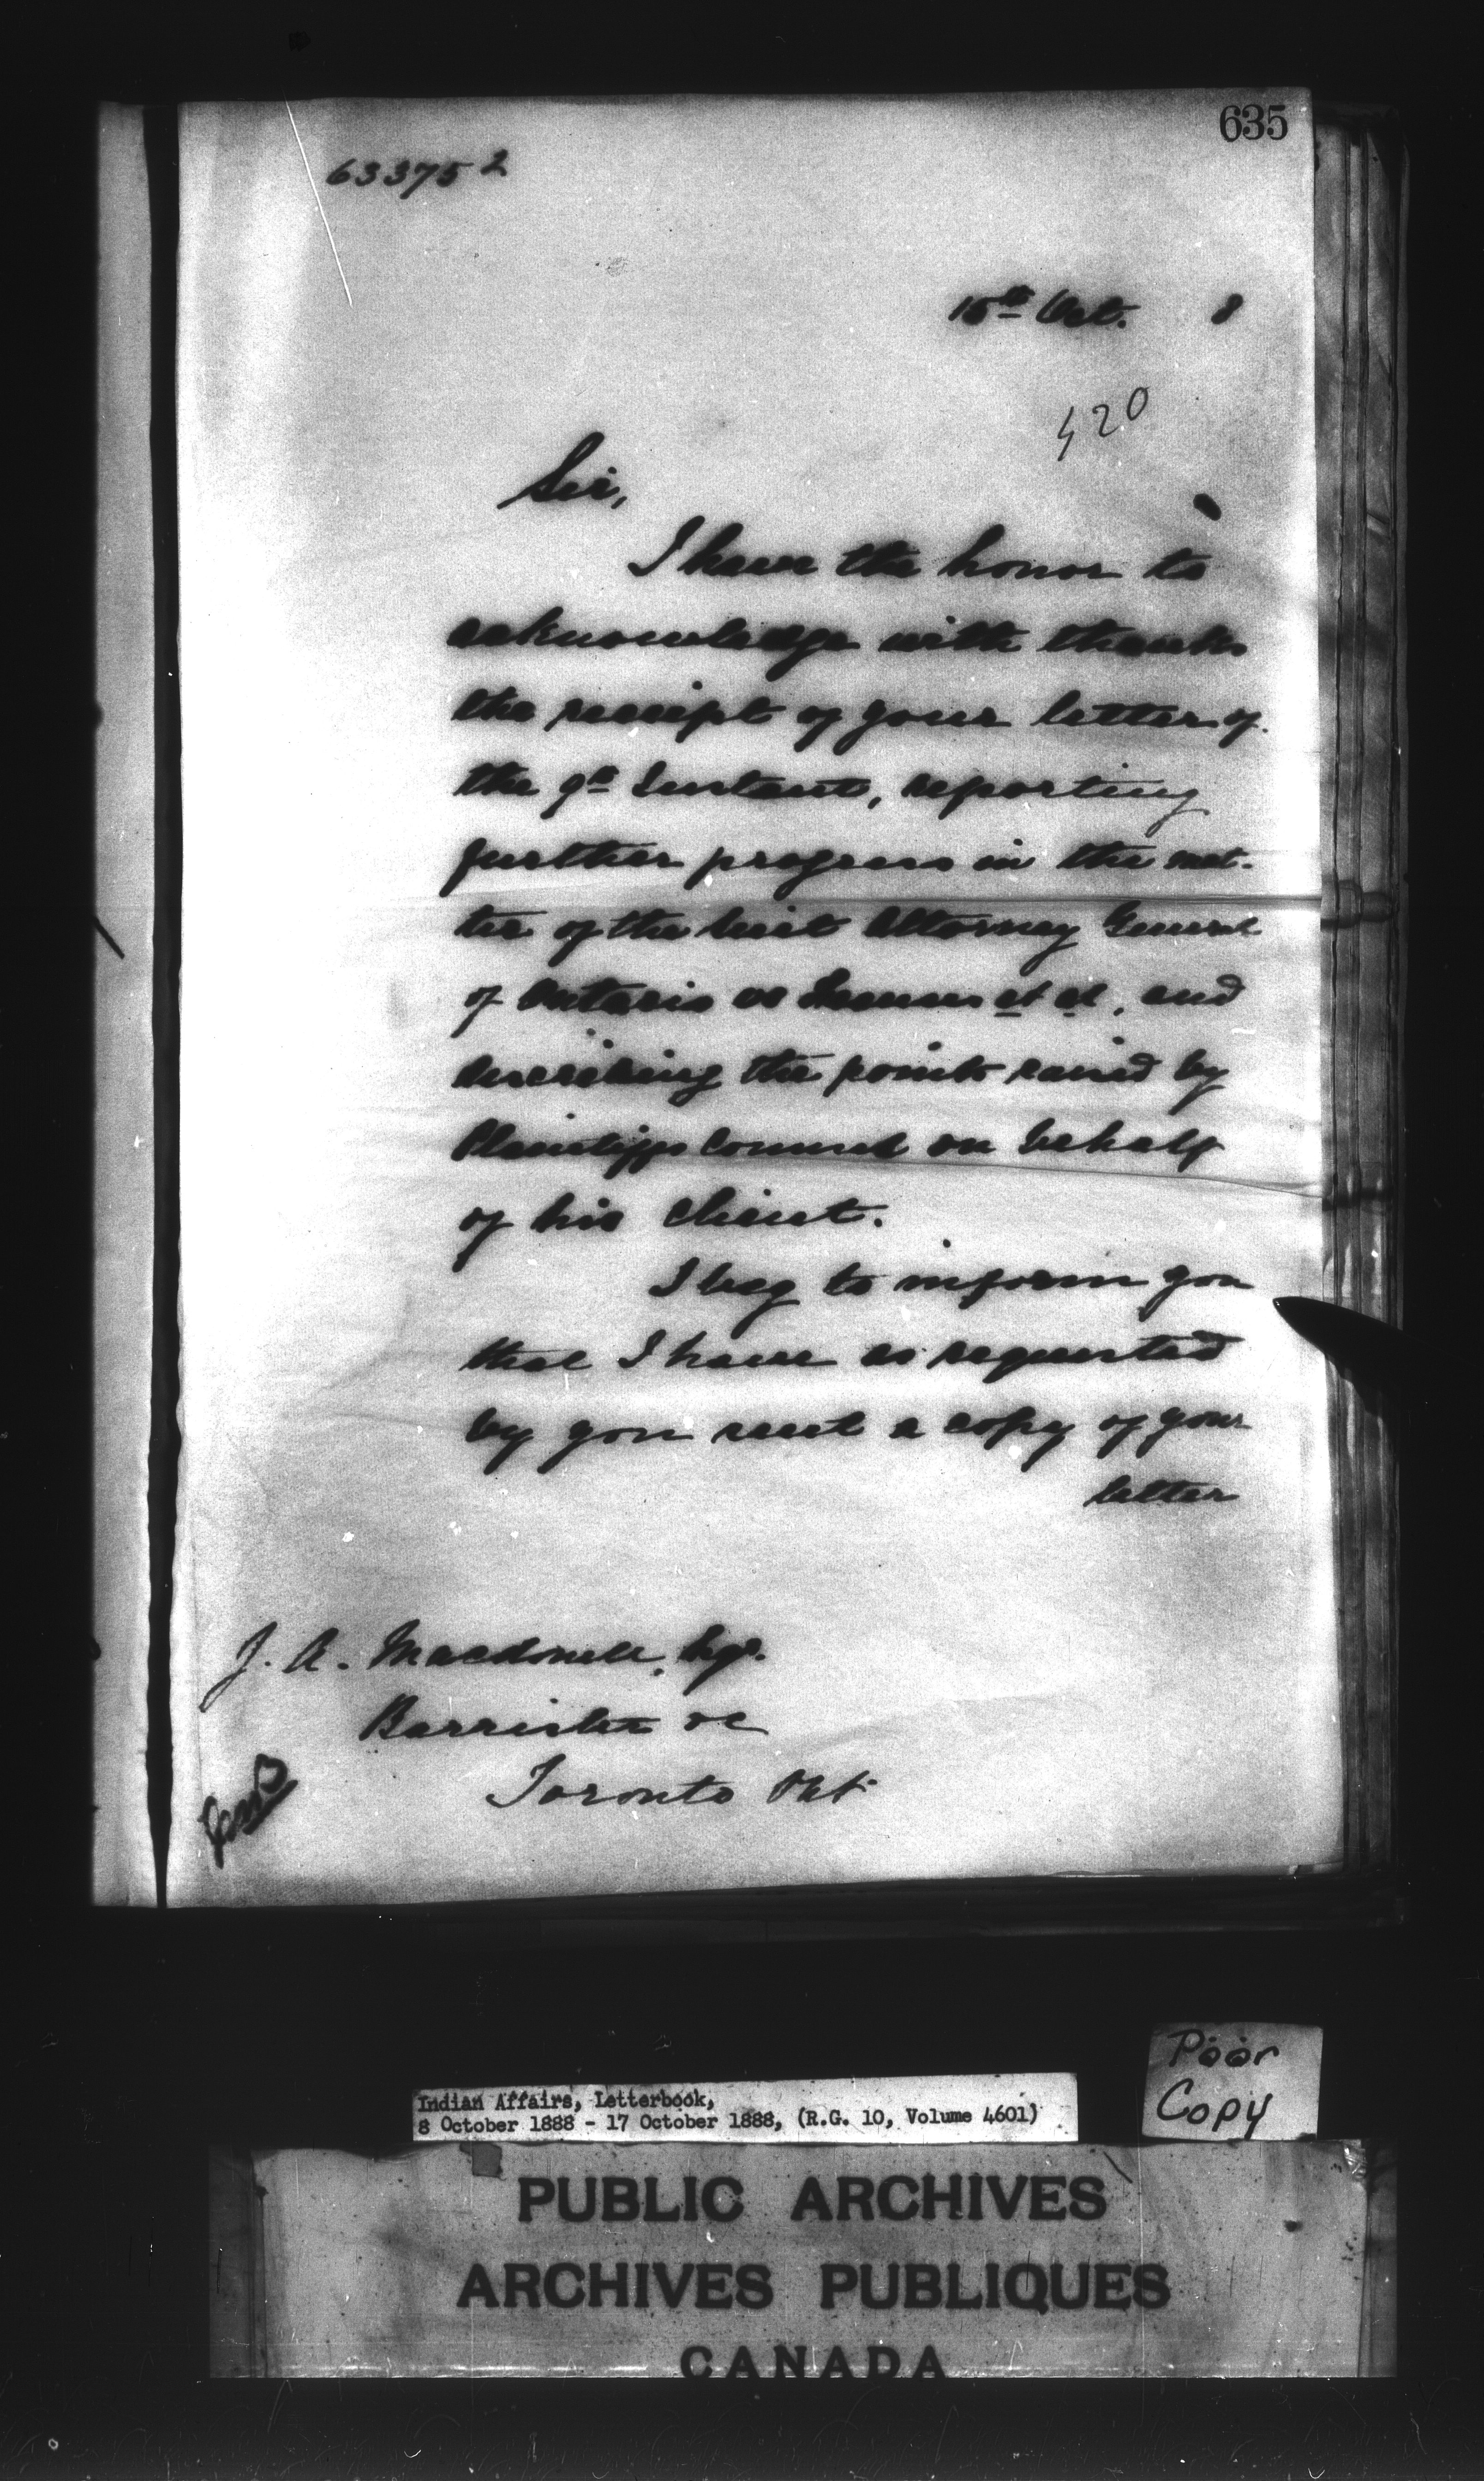 635
63375 2
15th Oct. 8
420
Sir,
I have the honor to
acknowledge with thanks
the receipt of your letter of
the 9th Instant, reporting
further progress in the mat-
ter of the suit Attorney General
of Ontario vs et al, and
describing the points raised by
Plaintiffs Counsel on behalf
of his client.
I beg to inform you
that I have as requested
by you sent a copy of your
letter
J. A. Macdonell, Esqr.
Barrister &c
Toronto Ont
Poor
Copy
Indian Affairs, Letterbook,
8 October 1888 - 17 October 1888, (R.G. 10, Volume 4601)
PUBLIC ARCHIVES
ARCHIVES PUBLIQUES
CANADA